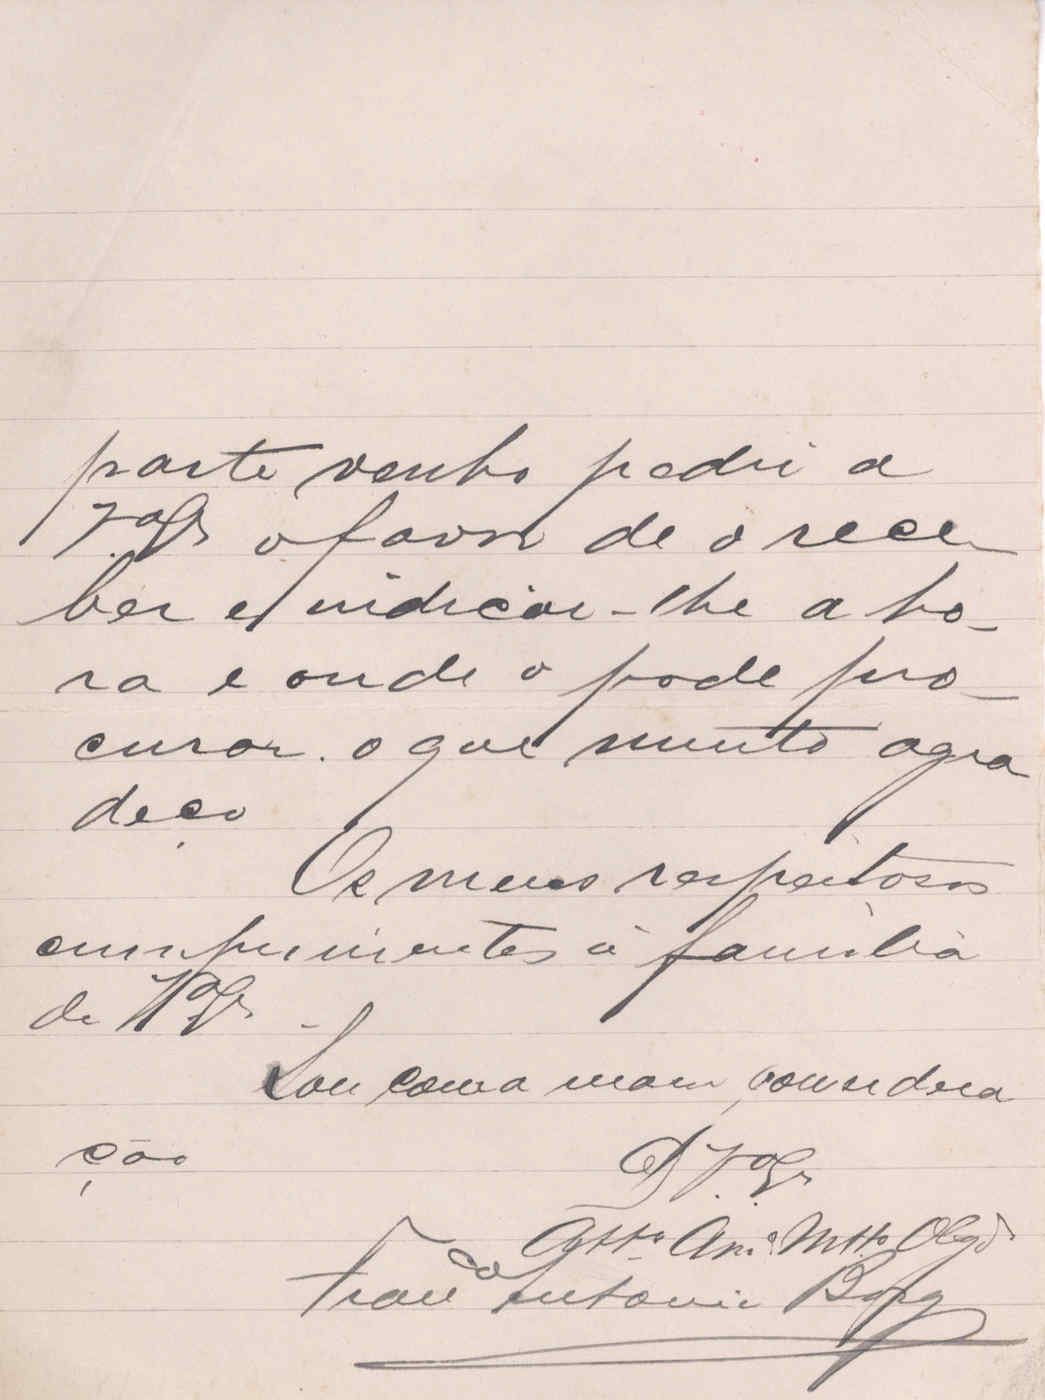 parte venho pedir a
V. Ex.ª o favor de o rece
ber e indicar-lhe a ho-
ra e onde o pode pro-
curar. o que muito agra
deço
Os meus respeitosos
cumprimentos á familia
de V. Ex.ª -
Sou com a maior considera
ção
De V. Ex.ª
Att.º Am.º Mtt.º Obgd.
Fran.co Antonio Borg